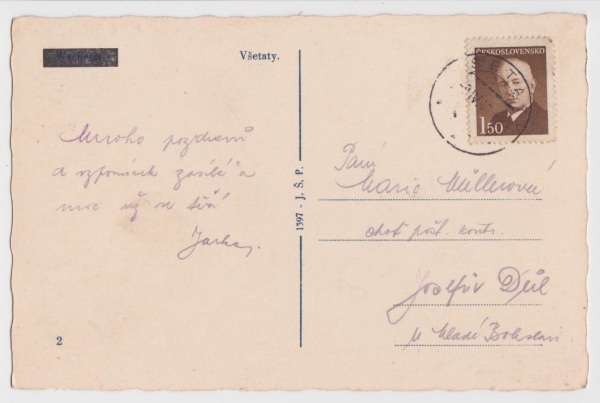 Všetaty.
ČESKOSLOVENSKO
1.50
Mnoho pozdravů
a vzpomínek zasílá a
moc už se těší
Jarka.
1397 - J. Š. P.
Paní
Marie Müllerová
choť pošt. kontr.
Josefův Důl
u Mladé Boleslavi
2